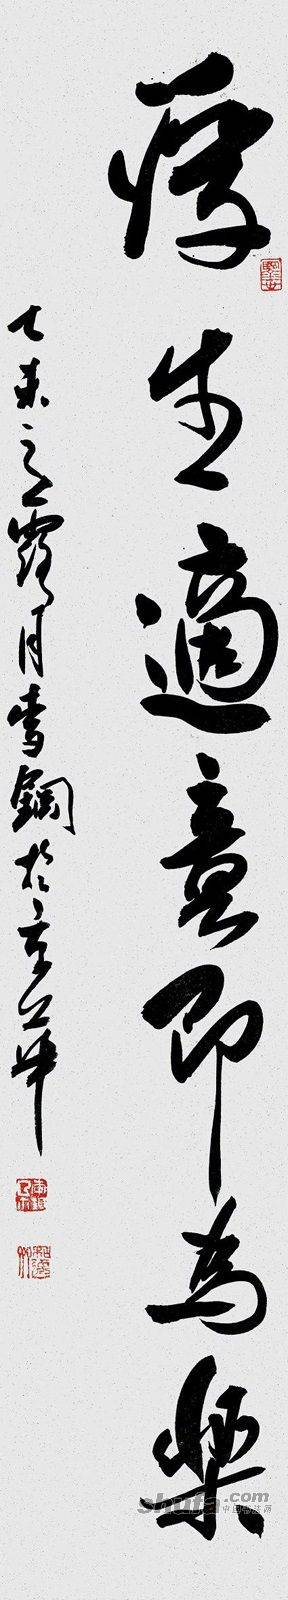 浮生適意即為樂
乙未之月李鋼於京華
shufa.com